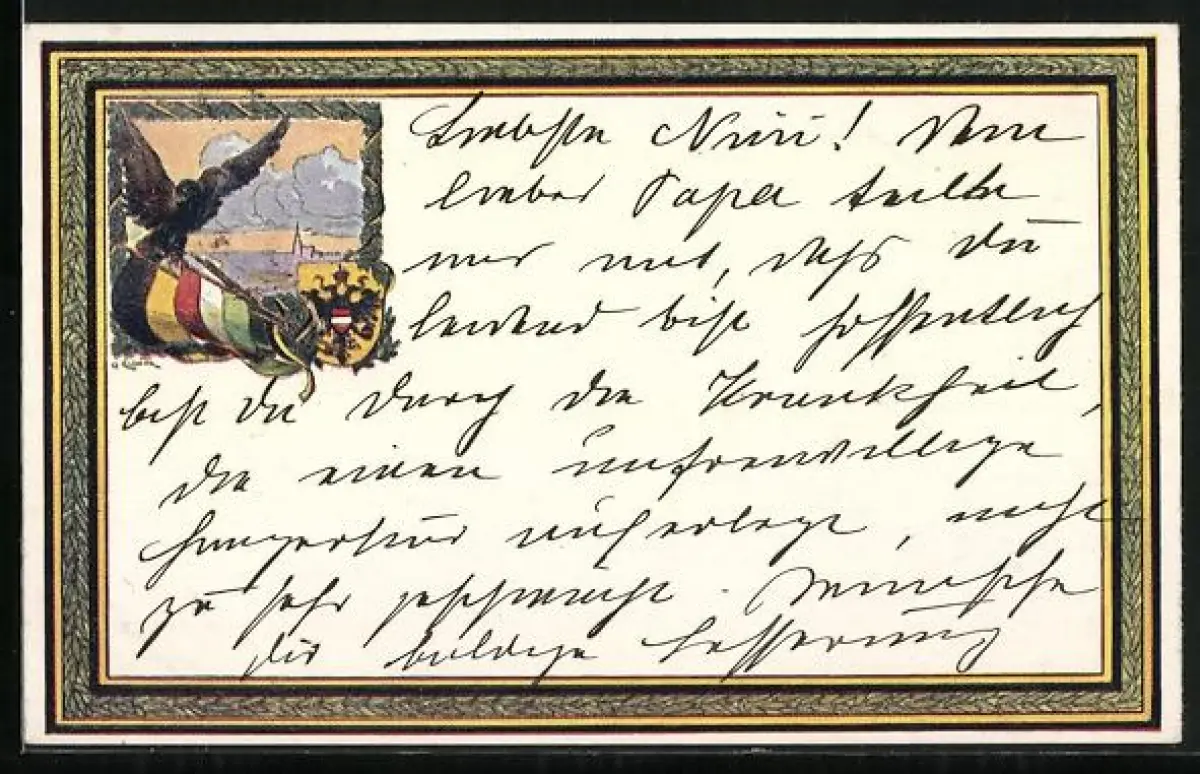 Liebste Nini! Dein
lieber Papa teilte
mir mit, daß du
leidend bist hoffentlich
bist du durch die Krankheit,
die einen unfreiwillige
Hungerkur auferlegt, nicht
zu sehr geschwächt. Wünsche
dir baldige Besserung